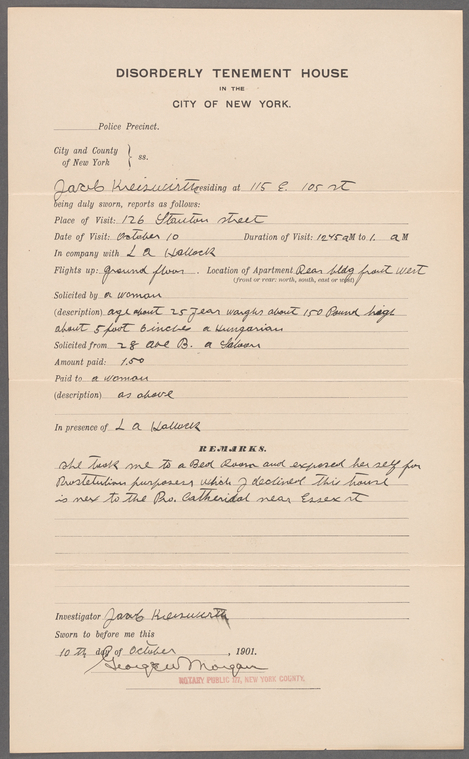 DISORDERLY TENEMENT HOUSE
IN THE
CITY OF NEW YORK.
Police Precinct.
City and County
of New York } ss.
Jacob Kreiswirth residing at 115 E. 105 st
being duly sworn, reports as follows:
Place of Visit: 126 Stanton street
Date of Visit: October 10 Duration of Visit: 1245 a M to 1. a M
In company with L A Hallock
Flights up: ground floor. Location of Apartment Rear bldg front west
(front or rear; north, south, east or west)
Solicited by a woman
(description) age about 25 year waighs about 150 Pound high
about 5 foot 6 inches a Hungarian
Solicited from 28 Ave B. a Saloon
Amount paid: 1.50
Paid to a woman
(description) as above
In presence of L A Hallock
REMARKS.
she took me to a Bed Room and exposed her self for
Prostetution purposess which I declined this house
is nex to the Pro. Catheridal near Essex st
Investigator Jacob Kreiswirth
Sworn to before me this
10 th day of October, 1901.
George W Morgan
NOTARY PUBLIC, NEW YORK COUNTY.